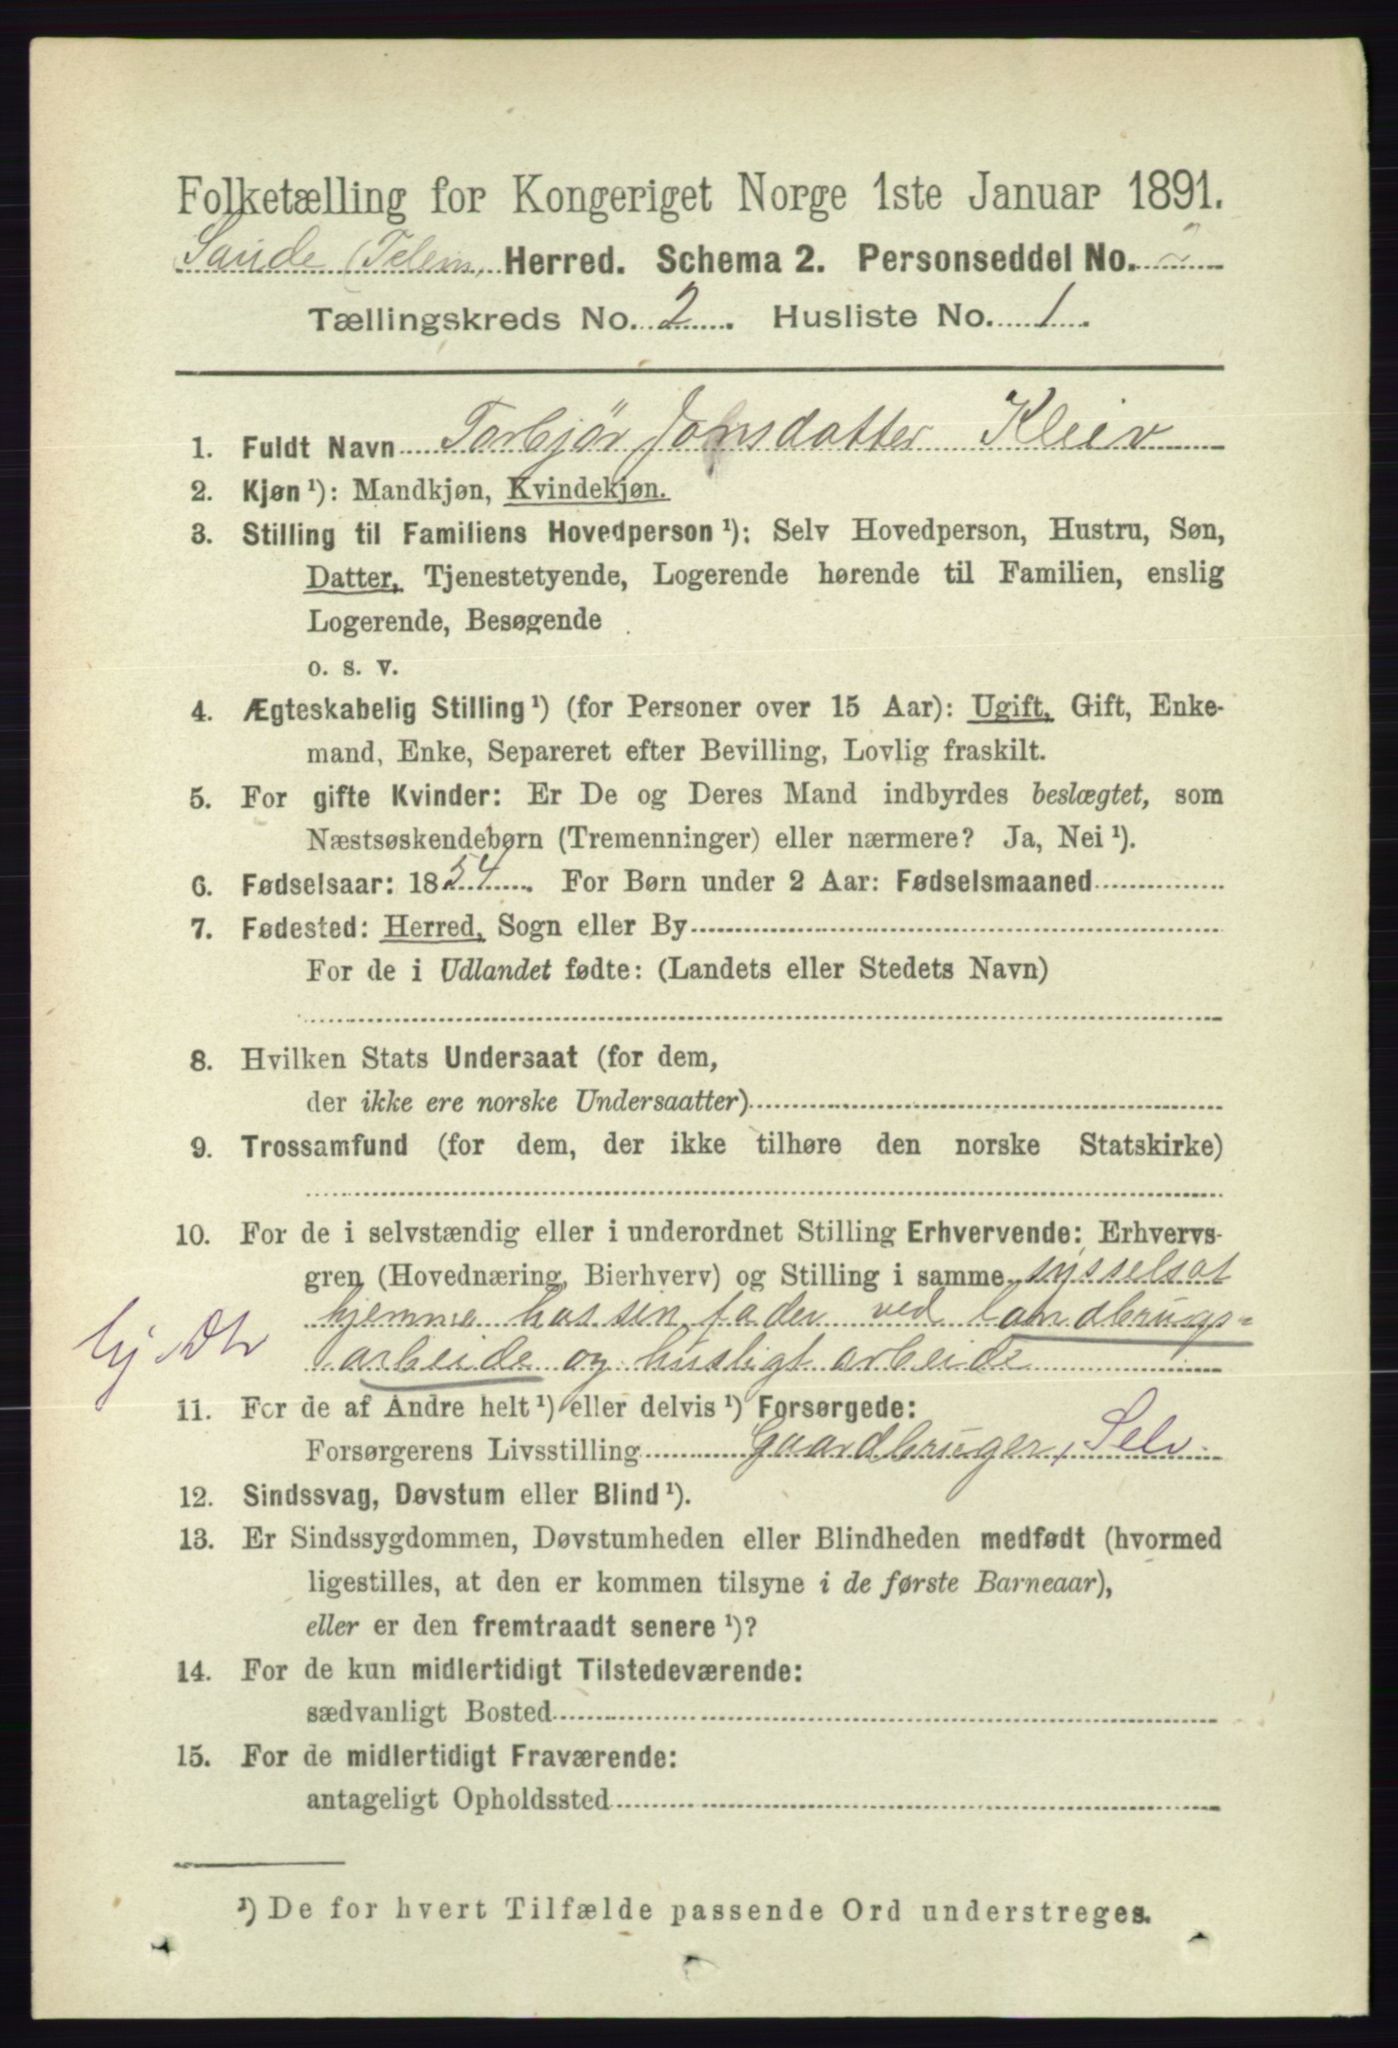 Folketælling for Kongeriget Norge 1ste Januar 1891.
Saude (Telem. Herred. Schema 2. Personseddel No.
Tællingskreds No. 2. Husliste No. 1.
1. Fuldt Navn Torbjør Jonsdatter Kleiv
2. Kjøn¹): Mandkjøn, Kvindekjøn.
3. Stilling til Familiens Hovedperson¹): Selv Hovedperson, Hustru, Søn,
Datter, Tjenestetyende, Logerende hørende til Familien, enslig
Logerende, Besøgende
o. s. v.
4. Ægteskabelig Stilling¹) (for Personer over 15 Aar): Ugift, Gift, Enke-
mand, Enke, Separeret efter Bevilling, Lovlig fraskilt.
5. For gifte Kvinder: Er De og Deres Mand indbyrdes beslægtet, som
Næstsøskendebørn (Tremenninger) eller nærmere? Ja, Nei¹).
6. Fødselsaar: 1854. For Børn under 2 Aar: Fødselsmaaned
7. Fødested: Herred, Sogn eller By
For de i Udlandet fødte: (Landets eller Stedets Navn)
8. Hvilken Stats Undersaat (for dem,
der ikke ere norske Undersaatter)
9. Trossamfund (for dem, der ikke tilhøre den norske Statskirke)
10. For de i selvstændig eller i underordnet Stilling Erhvervende: Erhvervs-
gren (Hovednæring, Bierhverv) og Stilling i samme sysselsat
hjemme hos sin fader ved landbrugs=
arbeide og husligt arbeide
11. For de af Andre helt¹) eller delvis¹) Forsørgede:
Forsørgerens Livsstilling Gaardbruger, Selv.
12. Sindssvag, Døvstum eller Blind¹).
13. Er Sindssygdommen, Døvstumheden eller Blindheden medfødt (hvormed
ligestilles, at den er kommen tilsyne i de første Barneaar),
eller er den fremtraadt senere¹)?
14. For de kun midlertidigt Tilstedeværende:
sædvanligt Bosted
15. For de midlertidigt Fraværende:
antageligt Opholdssted
¹) De for hvert Tilfælde passende Ord understreges.